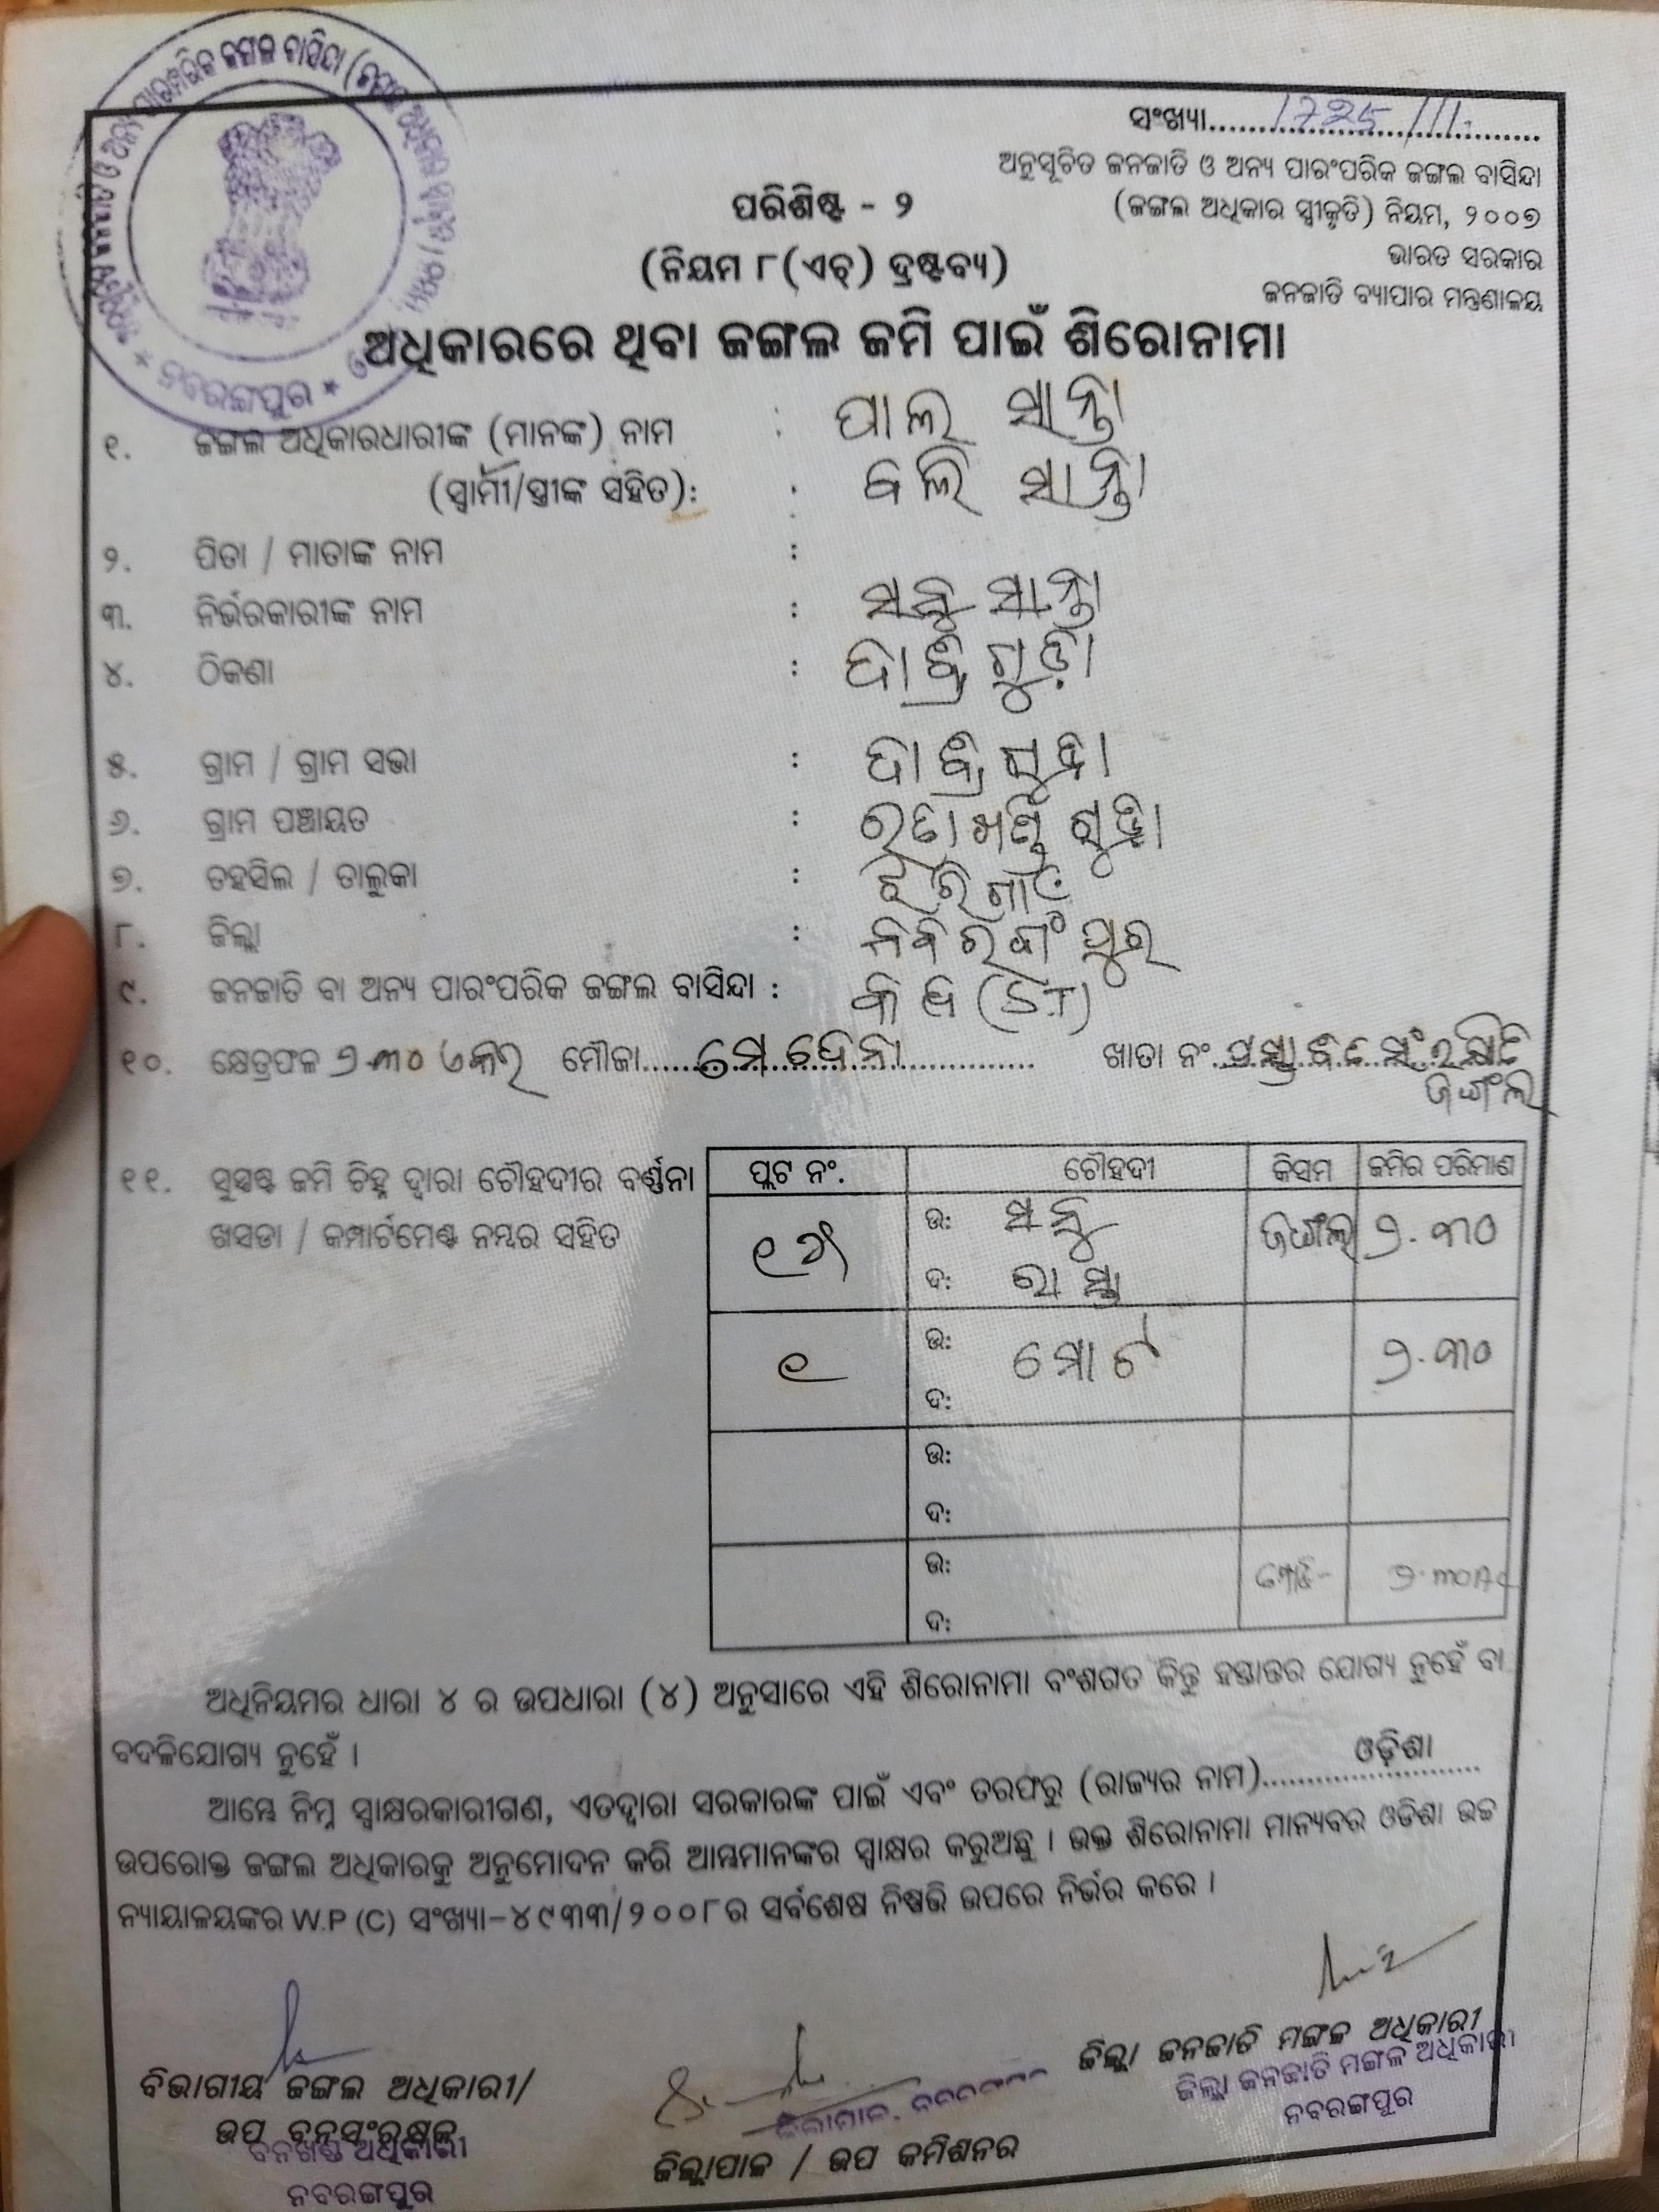 ସଂଖ୍ୟା.....1725/111.
ଅନୁସୂଚିତ ଜନଜାତି ଓ ଅନ୍ୟ ପାରଂପରିକ ଜଙ୍ଗଲ ବାସିନ୍ଦା
(ଜଙ୍ଗଲ ଅଧିକାର ସ୍ୱୀକୃତି) ନିୟମ, ୨୦୦୭
ଭାରତ ସରକାର
ଜନଜାତି ବ୍ୟାପାର ମନ୍ତ୍ରଣାଳୟ
ପରିଶିଷ୍ଟ - ୨
(ନିୟମ ୮(ଏଚ୍) ଦ୍ରଷ୍ଟବ୍ୟ)
ଅଧିକାରରେ ଥିବା ଜଙ୍ଗଲ ଜମି ପାଇଁ ଶିରୋନାମା
ନବରଙ୍ଗପୁର
୧. ଜଙ୍ଗଲ ଅଧିକାରଧାରୀଙ୍କ (ମାନଙ୍କ) ନାମ : ପାଲ ସାନ୍ତା
(ସ୍ୱାମୀ/ସ୍ତ୍ରୀଙ୍କ ସହିତ): : ବଲି ସାନ୍ତା
୨. ପିତା / ମାତାଙ୍କ ନାମ :
୩. ନିର୍ଭରକାରୀଙ୍କ ନାମ : ସନୁ ସାନ୍ତା
୪. ଠିକଣା :
୫. ଗ୍ରାମ / ଗ୍ରାମ ସଭା :
୬. ଗ୍ରାମ ପଞ୍ଚାୟତ :
୭. ତହସିଲ / ତାଲୁକା : ଝରିଗାଁ
୮. ଜିଲ୍ଲା : ନବରଙ୍ଗପୁର
୯. ଜନଜାତି ବା ଅନ୍ୟ ପାରଂପରିକ ଜଙ୍ଗଲ ବାସିନ୍ଦା : (ST)
୧୦. କ୍ଷେତ୍ରଫଳ ୨.୩୦ ଏକର ମୌଜା..... ଖାତା ନଂ.....
ଜଙ୍ଗଲ
୧୧. ସୁସ୍ପଷ୍ଟ ଜମି ଚିହ୍ନ ଦ୍ୱାରା ଚୌହଦୀର ବର୍ଣ୍ଣନା
ଖସଡା / କମ୍ପାର୍ଟମେଣ୍ଟ ନମ୍ବର ସହିତ
ପ୍ଲଟ ନଂ. ଚୌହଦୀ କିସମ ଜମିର ପରିମାଣ
ଉ: ସନୁ ଜଙ୍ଗଲ ୨.୩୦
ଦ: ରାସ୍ତା
୧ ଉ: ମୋଟ ୨.୩୦
ଦ:
ଉ:
ଦ:
ଉ: ମୋଟ- ୨.୩୦
ଦ:
ଅଧିନିୟମର ଧାରା ୪ ର ଉପଧାରା (୪) ଅନୁସାରେ ଏହି ଶିରୋନାମା ବଂଶଗତ କିନ୍ତୁ ହସ୍ତାନ୍ତର ଯୋଗ୍ୟ ନୁହେଁ ବା
ବଦଳିଯୋଗ୍ୟ ନୁହେଁ ।
ଆମ୍ଭେ ନିମ୍ନ ସ୍ୱାକ୍ଷରକାରୀଗଣ, ଏତଦ୍ୱାରା ସରକାରଙ୍କ ପାଇଁ ଏବଂ ତରଫରୁ (ରାଜ୍ୟର ନାମ).....ଓଡ଼ିଶା
ଉପରୋକ୍ତ ଜଙ୍ଗଲ ଅଧିକାରକୁ ଅନୁମୋଦନ କରି ଆମ୍ଭମାନଙ୍କର ସ୍ୱାକ୍ଷର କରୁଅଛୁ । ଉକ୍ତ ଶିରୋନାମା ମାନ୍ୟବର ଓଡିଶା ଉଚ୍ଚ
ନ୍ୟାୟାଳୟଙ୍କର W.P (C) ସଂଖ୍ୟା-୪୯୩୩/୨୦୦୮ର ସର୍ବଶେଷ ନିଷ୍ପତ୍ତି ଉପରେ ନିର୍ଭର କରେ ।
ଜିଲ୍ଲା ଜନଜାତି ମଙ୍ଗଳ ଅଧିକାରୀ
ଜିଲ୍ଲା ଜନଜାତି ମଙ୍ଗଳ ଅଧିକାରୀ
ନବରଙ୍ଗପୁର
ବିଭାଗୀୟ ଜଙ୍ଗଲ ଅଧିକାରୀ/
ଉପ ବନସଂରକ୍ଷକ
ବନଖଣ୍ଡ ଅଧିକାରୀ
ନବରଙ୍ଗପୁର
ଜିଲ୍ଲାପାଳ, ନବରଙ୍ଗପୁର
ଜିଲ୍ଲାପାଳ / ଉପ କମିଶନର